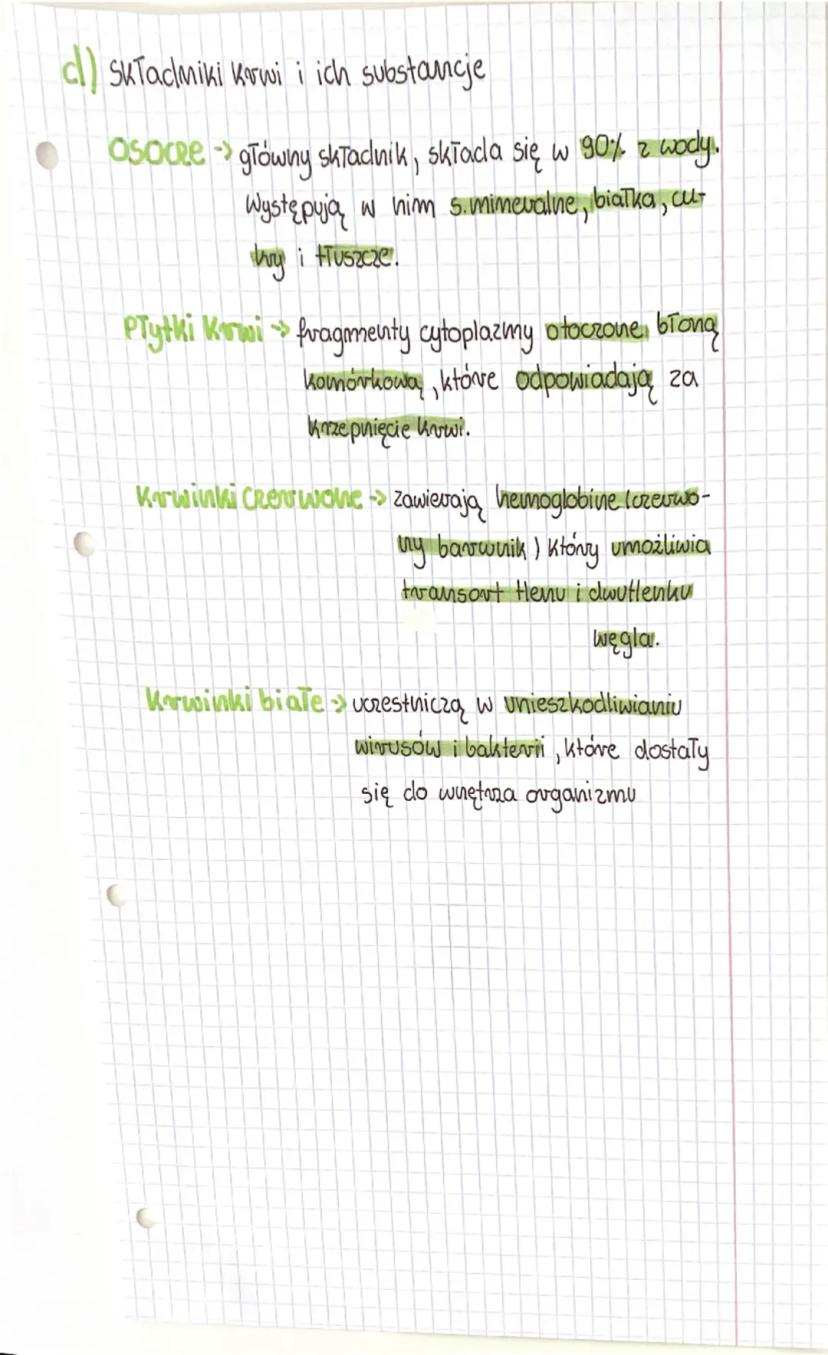 d) Składniki krwi i ich substancje
OSOCZE -> główny składnik, składa się w 90% z wody.
Występują w nim s.mineralne, białka, cu-
kry i tłuszcze.
Płytki Krwi -> fragmenty cytoplazmy otoczone błoną
komórkową, które odpowiadają za
krzepnięcie krwi.
Krwinki Czerwone -> zawierają hemoglobine (czerwo-
ny barwnik) który umożliwia
transort tlenu i dwutlenku
węgla.
Krwinki białe -> uczestniczą w unieszkodliwianiu
wirusów i bakterii, które dostały
się do wnętrza organizmu